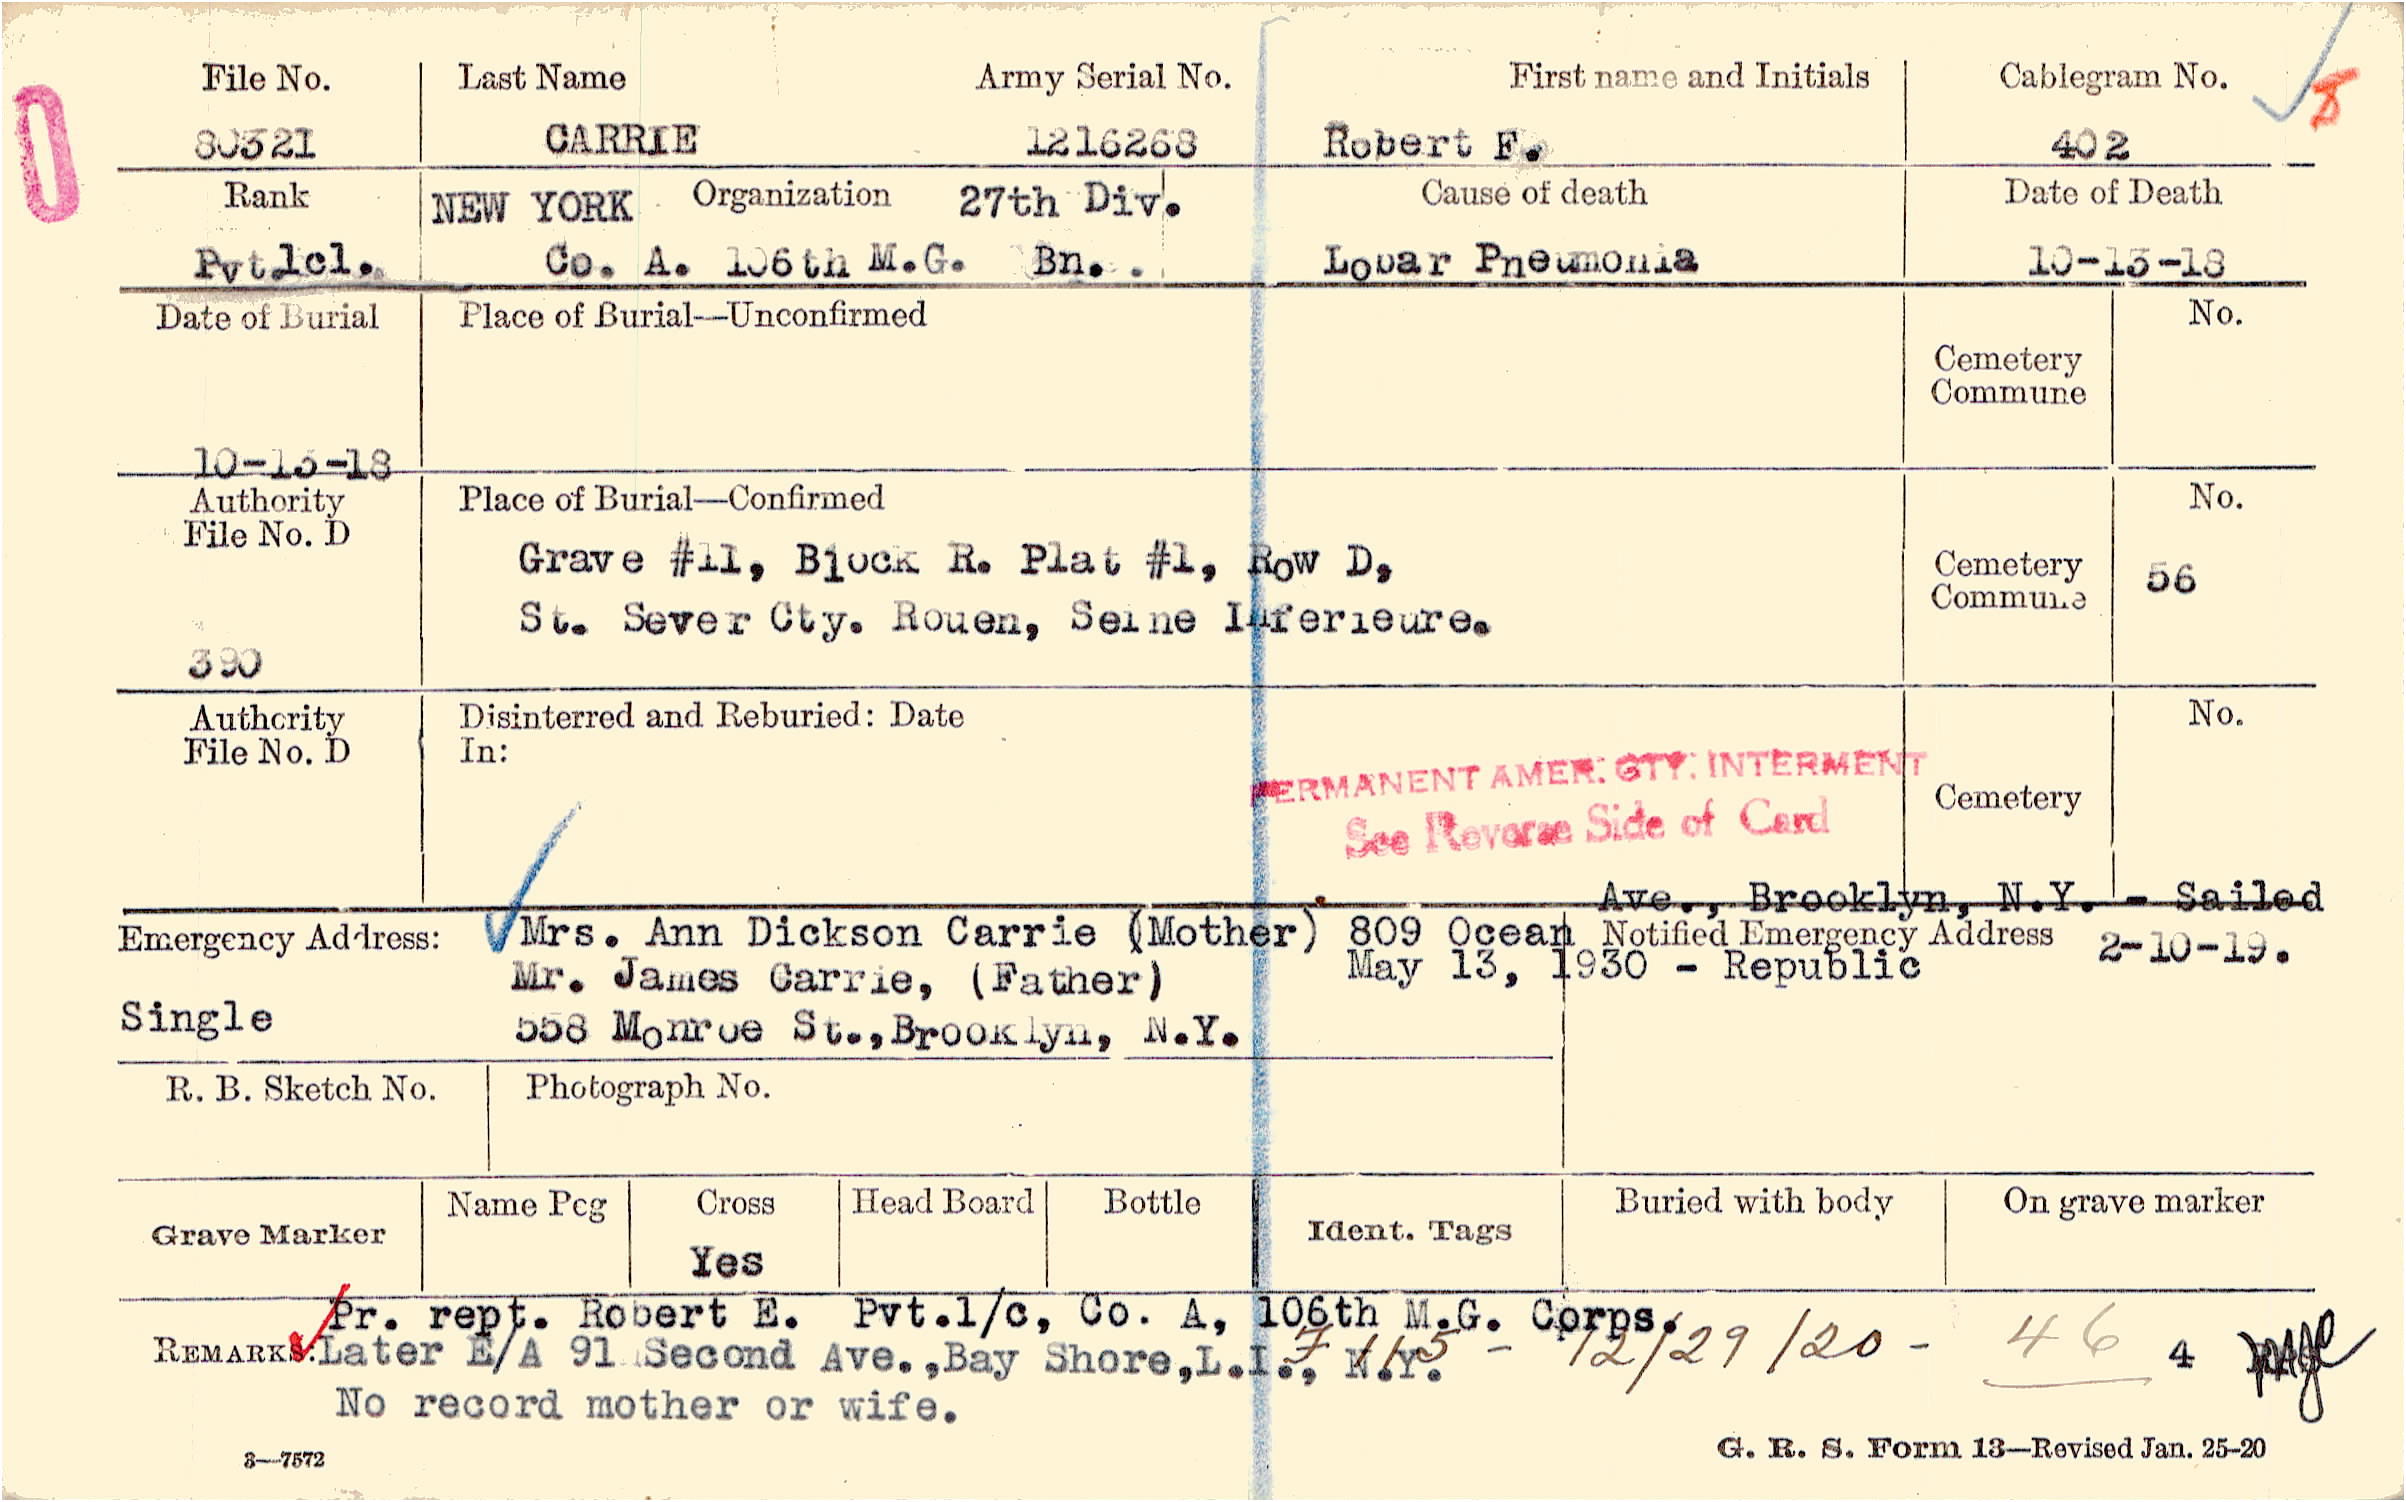 File No. Last Name Army Serial No. First name and Initials Cablegram No. 8
80321 CARRIE 1216268 Robert F. 402
Rank NEW YORK Organization 27th Div. Cause of death Date of Death
Pvt.1cl. Co. A. 106th M.G. Bn. Lobar Pneumonia 10-13-18
Date of Burial Place of Burial—Unconfirmed No.
Cemetery
Commune
10-13-18
Authority Place of Burial—Confirmed No.
File No. D
Grave #11, Block R. Plat #1, Row D,
Cemetery 56
Commune
St. Sever Cty. Rouen, Seine Inferieure.
390
Authority Disinterred and Reburied: Date No.
File No. D In:
PERMANENT AMER. CTY. INTERMENT
Cemetery
See Reverse Side of Card
Ave., Brooklyn, N.Y. - Sailed
Emergency Address: Mrs. Ann Dickson Carrie (Mother) 809 Ocean Notified Emergency Address 2-10-19.
Mr. James Carrie, (Father) May 13, 1930 - Republic
Single 558 Monroe St.,Brooklyn, N.Y.
R. B. Sketch No. Photograph No.
Grave Marker Name Peg Cross Head Board Bottle Ident. Tags Buried with body On grave marker
Yes
Pr. rept. Robert E. Pvt.1/c, Co. A, 106th M.G. Corps.
REMARKS: Later E/A 91 Second Ave.,Bay Shore,L.I., N.Y. - 12/29/20 - 46 4
No record mother or wife.
3—7572 G. R. S. Form 13—Revised Jan. 25-20